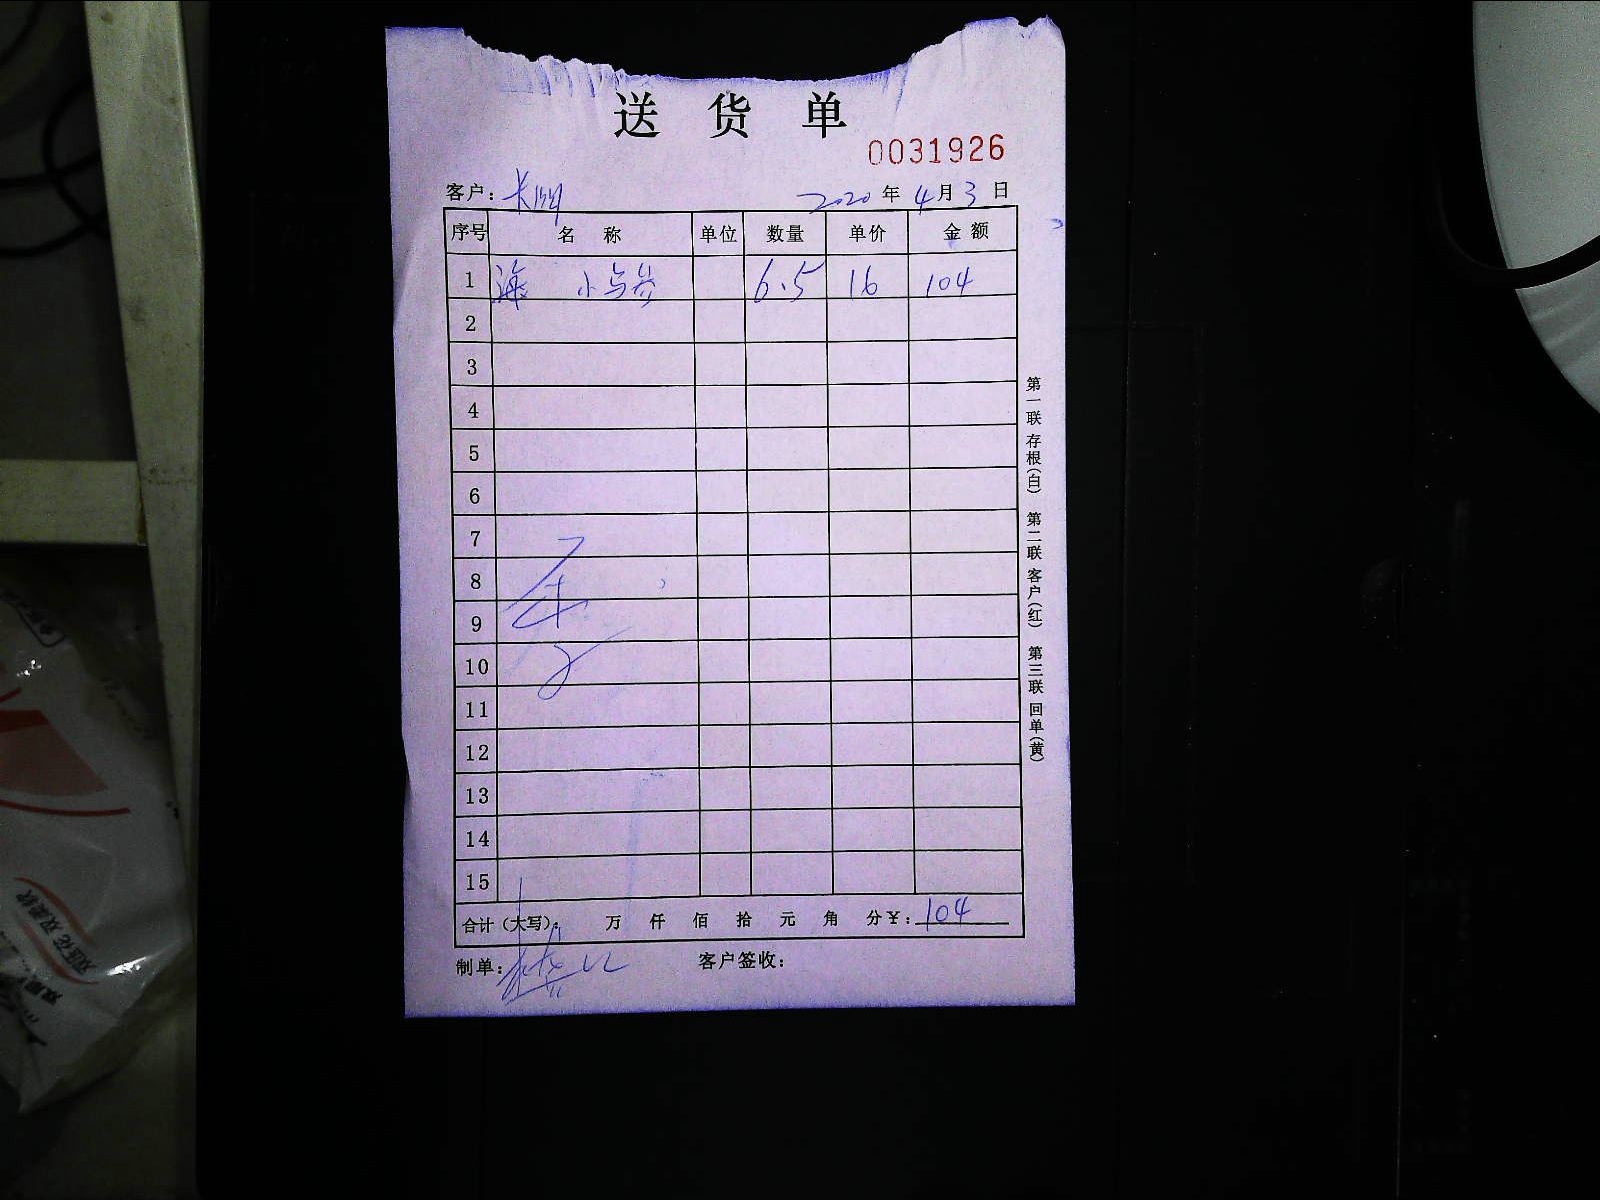 送货单
0031926
客户: 2020年4月3日
序号 名称 单位 数量 单价 金额
1 海 小乌参 6.5 16 104
2
3
4
5
6
7
8
9
10
11
12
13
14
15
合计(大写): 万 仟 佰 拾 元 角 分¥: 104
制单: 客户签收:
第一联 存根(白) 第二联 客户(红) 第三联 回单(黄)